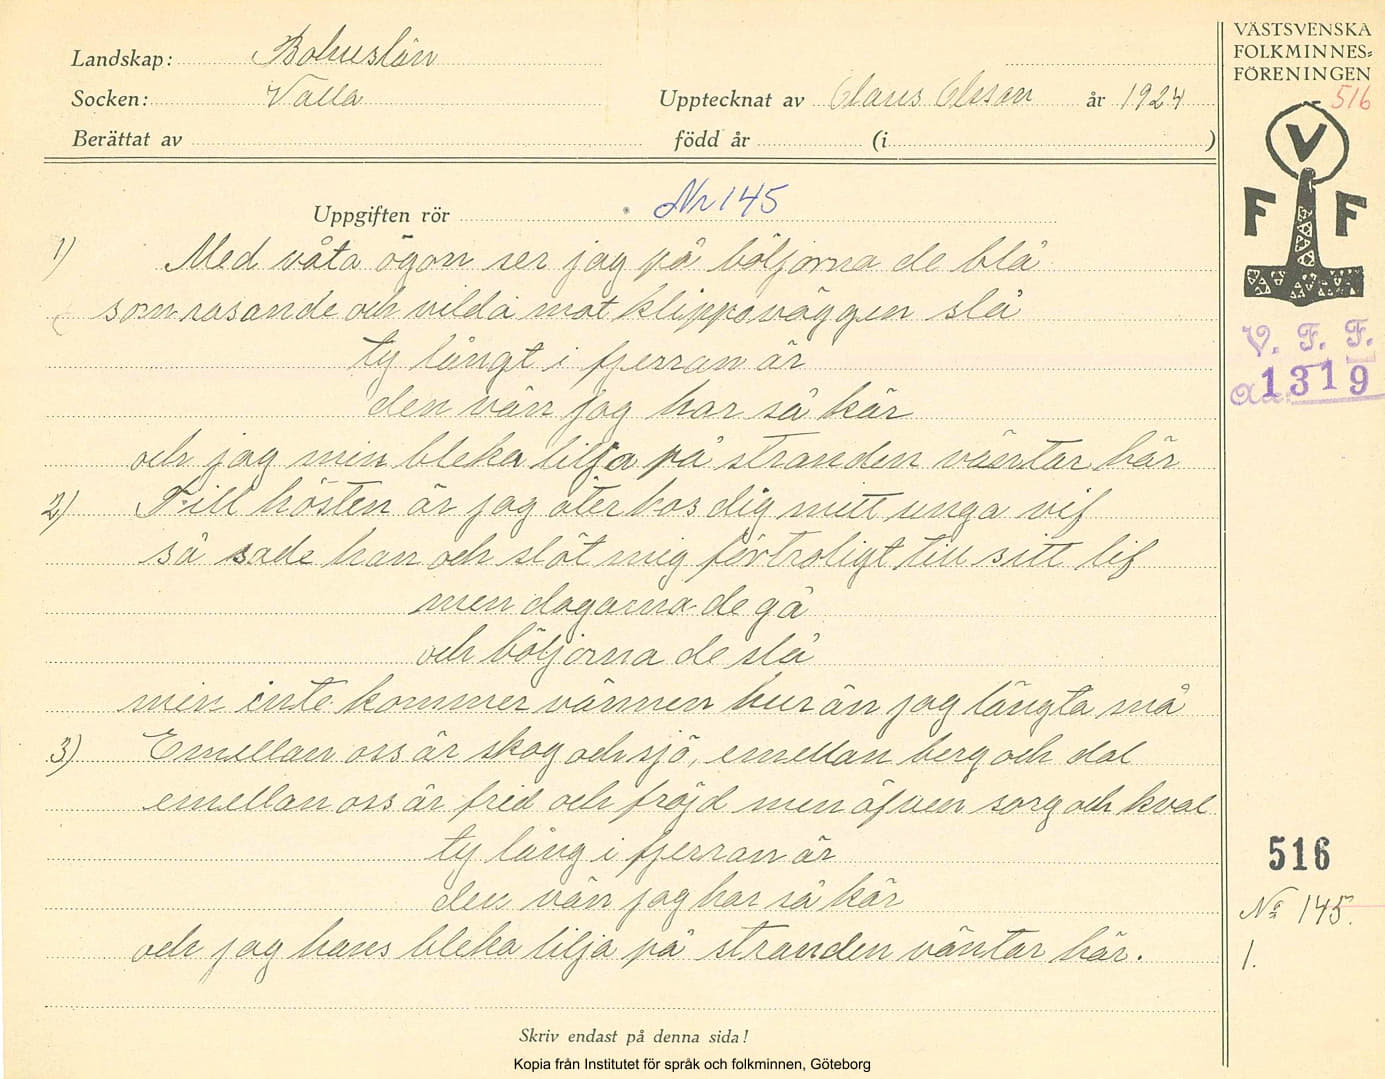 Landskap: Bohuslän
Socken: Valla
Upptecknat av Claus Olsson år 1924
Berättat av
född år (i )
VÄSTSVENSKA
FOLKMINNES=
FÖRENINGEN
516
V
F F
V. F. F.
1319
Uppgiften rör Nr 145
1) Med våta ögon ser jag på böljorna de blå
som rasande och vilda mot klippaväggen slå
ty långt i fjerran är
den vän jag har så kär
och jag min bleka lilja på stranden väntar här
2) Till hösten är jag åter hos dig mitt unga vif
så sade han och slöt mig förtroligt till sitt lif
men dagarna de gå
och böljorna de slå
min inte kommer vännen hur än jag längta må
3) Emellan oss är skog och sjö, emellan berg och dal
emellan oss är frid och fröjd men äfven sorg och kval
ty lång i fjerran är
den vän jag har så kär
och jag hans bleka lilja på stranden väntar här.
516
No 145.
1.
Skriv endast på denna sida!
Kopia från Institutet för språk och folkminnen, Göteborg